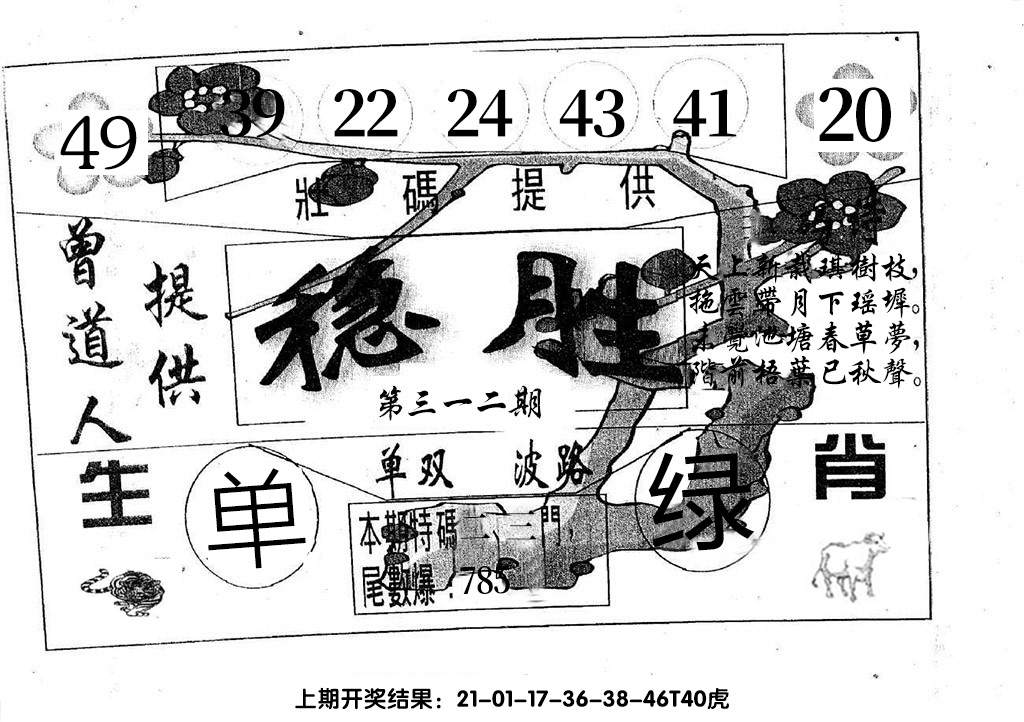 49 39 22 24 43 41 20
壯碼提供
特
曾道人
提供
稳胜
天上新栽琪樹枝，
拖雲帶月下瑶墀。
未覺池塘春草夢，
階前梧葉已秋聲。
第三一二期
单双 波路
生肖
单
绿
本期特碼二、三門，
尾數爆：785
上期开奖结果：21-01-17-36-38-46T40虎